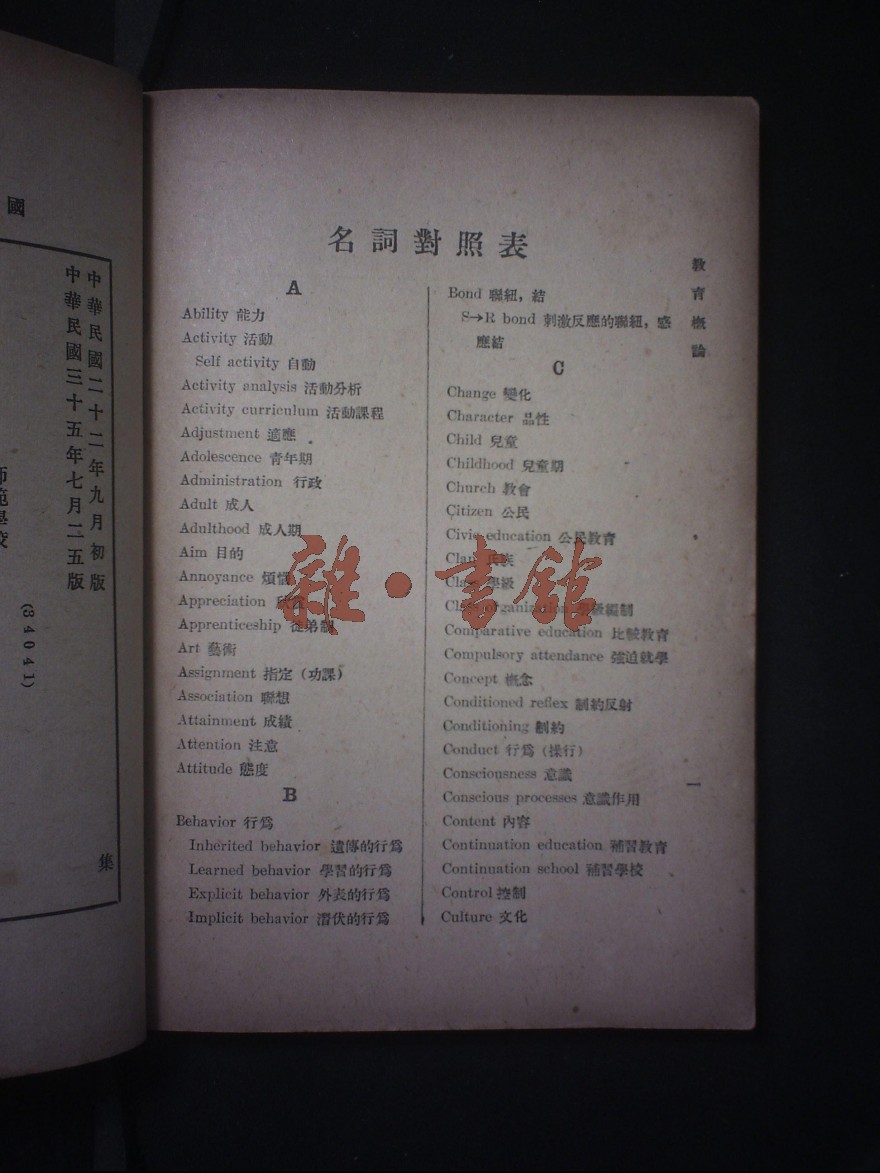 名詞對照表
A
Ability 能力
Activity 活動
Self activity 自動
Activity analysis 活動分析
Activity curriculum 活動課程
Adjustment 適應
Adolescence 青年期
Administration 行政
Adult 成人
Adulthood 成人期
Aim 目的
Annoyance 煩惱
Appreciation
Apprenticeship 徒弟制
Art 藝術
Assignment 指定（功課）
Association 聯想
Attainment 成績
Attention 注意
Attitude 態度
B
Behavior 行爲
Inherited behavior 遺傳的行爲
Learned behavior 學習的行爲
Explicit behavior 外表的行爲
Implicit behavior 潛伏的行爲
Bond 聯紐，結
S→R bond 刺激反應的聯紐，感
應結
C
Change 變化
Character 品性
Child 兒童
Childhood 兒童期
Church 教會
Citizen 公民
Civic education 公民教育
Clan 氏族
Class 學級
Class organization 學級編制
Comparative education 比較教育
Compulsory attendance 強迫就學
Concept 概念
Conditioned reflex 制約反射
Conditioning 制約
Conduct 行爲（操行）
Consciousness 意識
Conscious processes 意識作用
Content 內容
Continuation education 補習教育
Continuation school 補習學校
Control 控制
Culture 文化
教育概論
一
雜·書館
國
中華民國二十二年九月初版
中華民國三十五年七月二五版
師範學校
(34041)
集